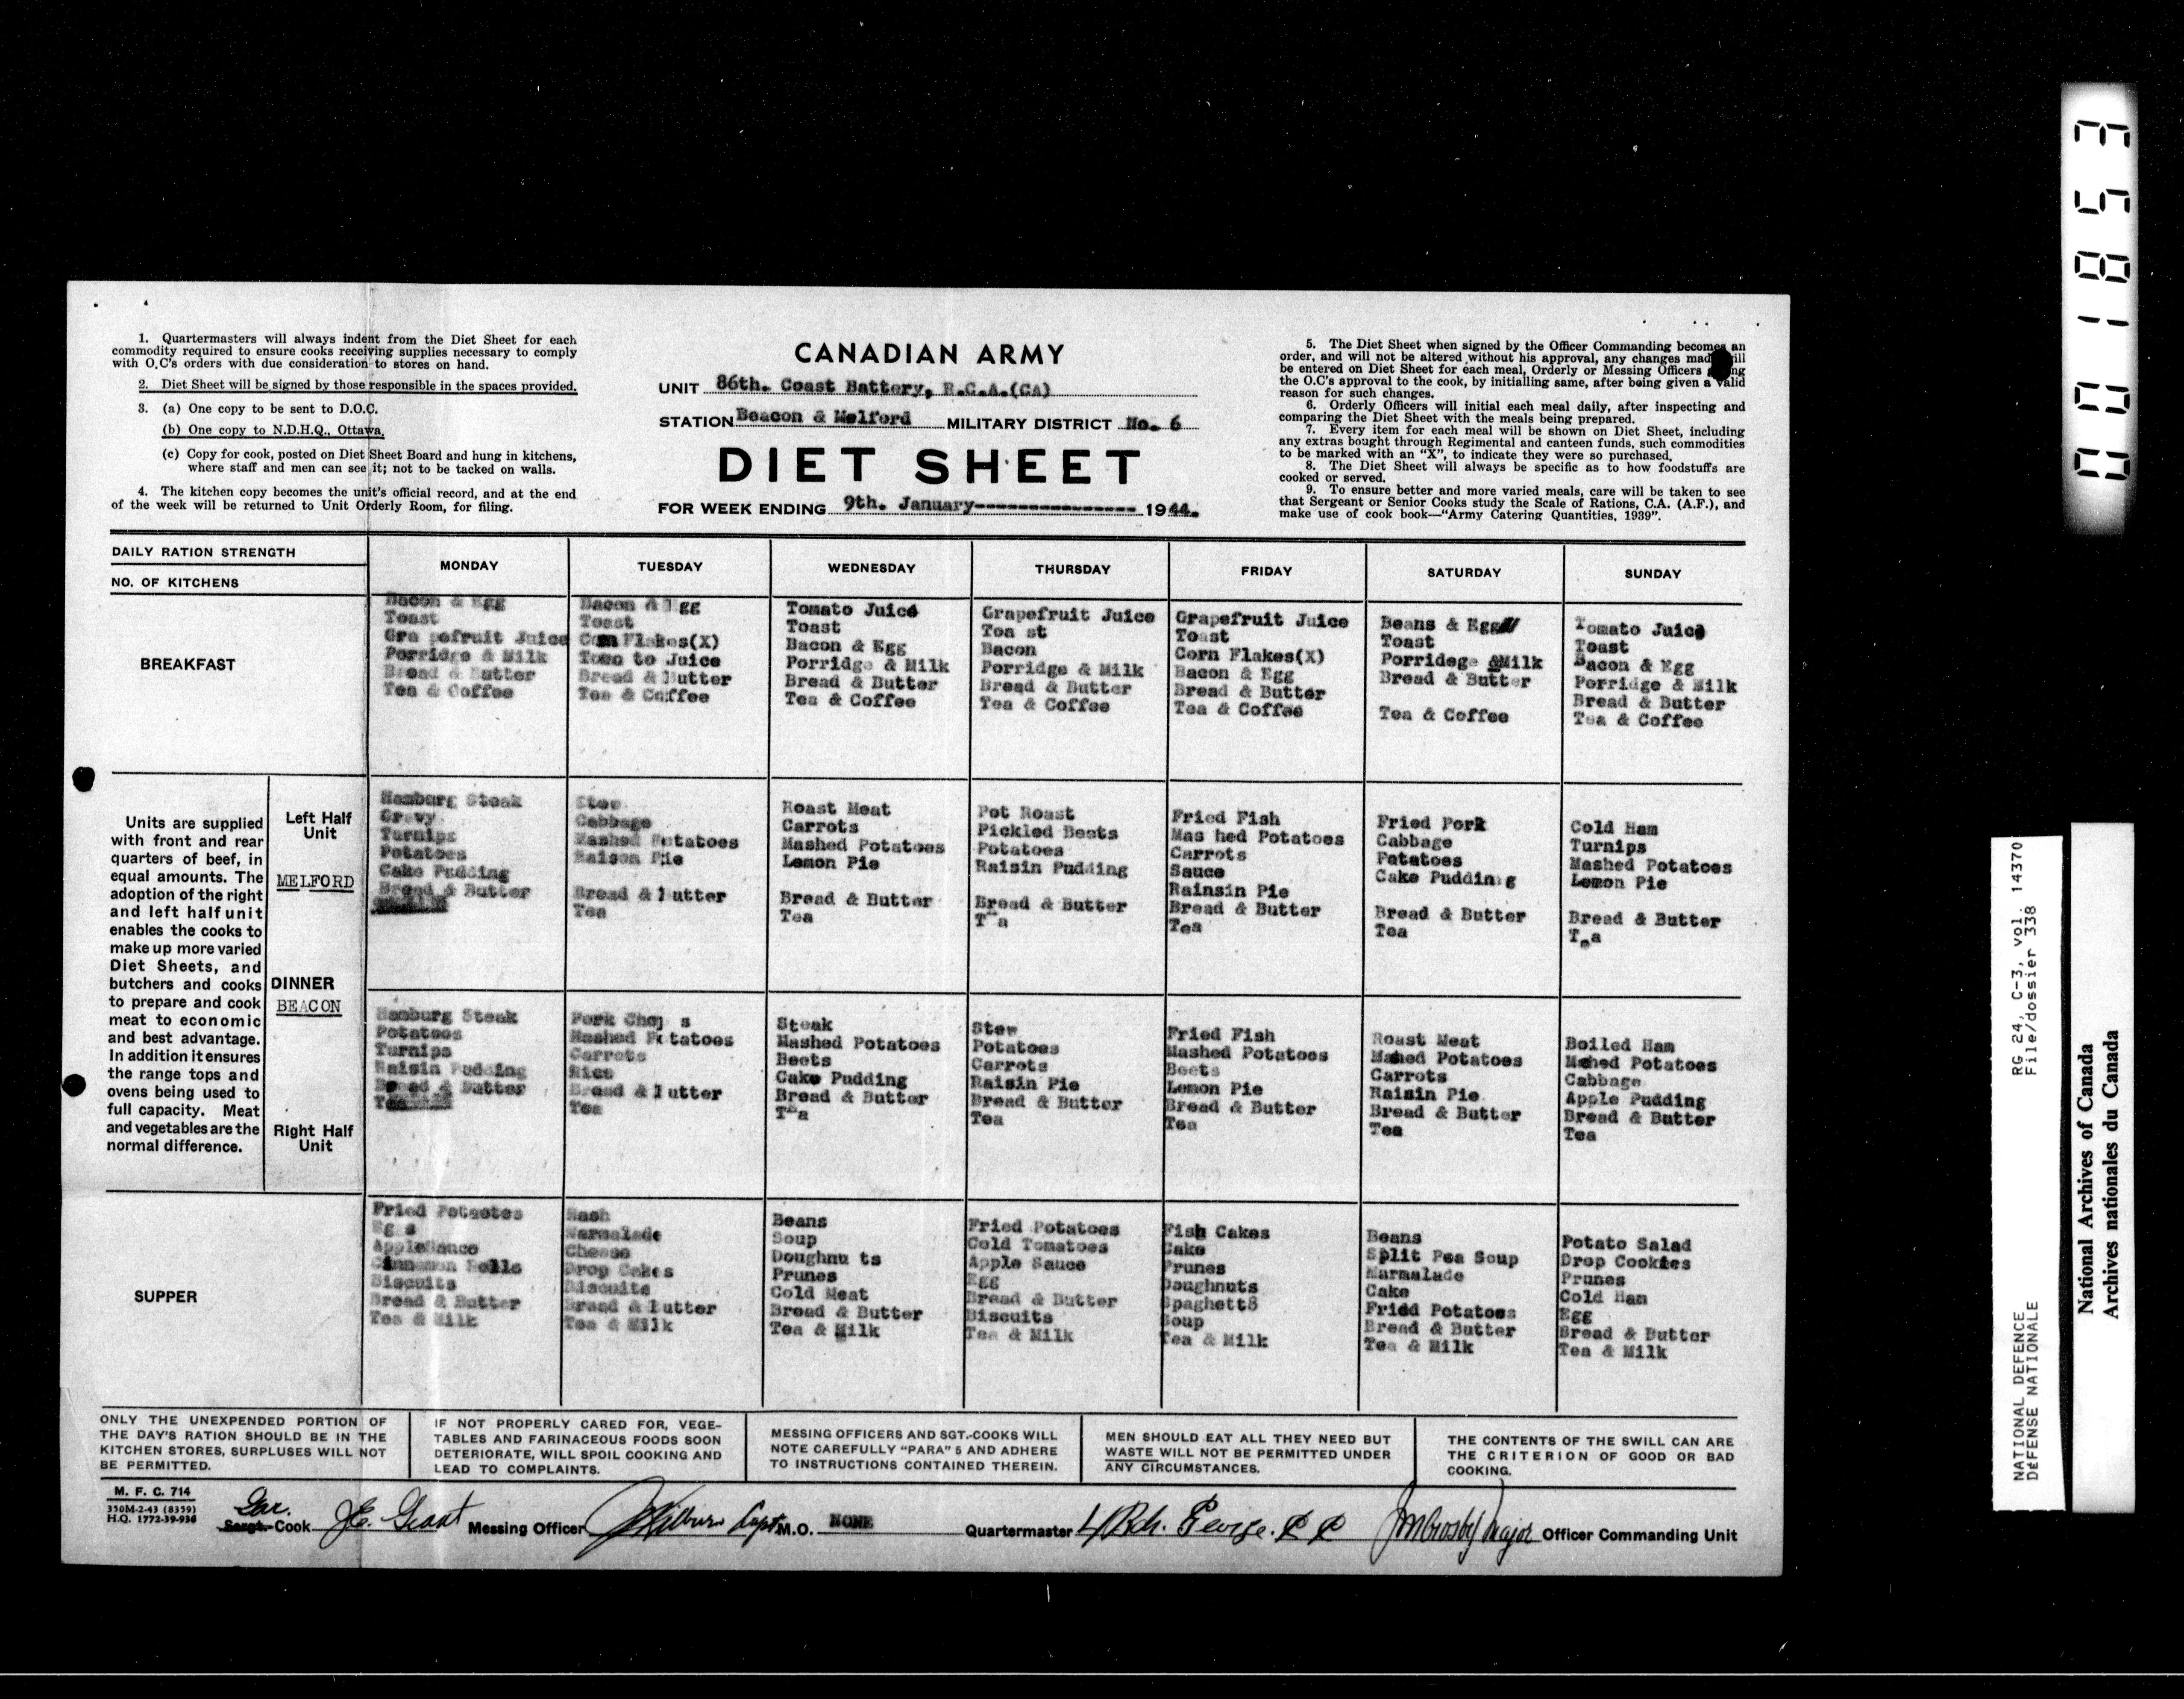 1. Quartermasters will always indent from the Diet Sheet for each
commodity required to ensure cooks receiving supplies necessary to comply
with O.C's orders with due consideration to stores on hand.
2. Diet Sheet will be signed by those responsible in the spaces provided.
3. (a) One copy to be sent to D.O.C.
(b) One copy to N.D.H.Q., Ottawa,
(c) Copy for cook, posted on Diet Sheet Board and hung in kitchens,
where staff and men can see it; not to be tacked on walls.
4. The kitchen copy becomes the unit's official record, and at the end
of the week will be returned to Unit Orderly Room, for filing.
CANADIAN ARMY
UNIT 86th. Coast Battery, R.C.A.(CA)
STATION Beacon & Melford MILITARY DISTRICT No. 6
DIET SHEET
FOR WEEK ENDING 9th. January---------------- 1944.
5. The Diet Sheet when signed by the Officer Commanding becomes an
order, and will not be altered without his approval, any changes made will
be entered on Diet Sheet for each meal, Orderly or Messing Officers
the O.C's approval to the cook, by initialling same, after being given a valid
reason for such changes.
6. Orderly Officers will initial each meal daily, after inspecting and
comparing the Diet Sheet with the meals being prepared.
7. Every item for each meal will be shown on Diet Sheet, including
any extras bought through Regimental and canteen funds, such commodities
to be marked with an "X", to indicate they were so purchased.
8. The Diet Sheet will always be specific as to how foodstuffs are
cooked or served.
9. To ensure better and more varied meals, care will be taken to see
that Sergeant or Senior Cooks study the Scale of Rations, C.A. (A.F.), and
make use of cook book—"Army Catering Quantities, 1939".
DAILY RATION STRENGTH
NO. OF KITCHENS
MONDAY
TUESDAY
WEDNESDAY
THURSDAY
FRIDAY
SATURDAY
SUNDAY
BREAKFAST
Bacon & Egg
Toast
Gra pefruit Juice
Porridge & Milk
Bread & Butter
Tea & Coffee
Bacon & Egg
Toast
Corn Flakes(X)
Toma to Juice
Bread & Butter
Tea & Coffee
Tomato Juice
Toast
Bacon & Egg
Porridge & Milk
Bread & Butter
Tea & Coffee
Grapefruit Juice
Toa st
Bacon
Porridge & Milk
Bread & Butter
Tea & Coffee
Grapefruit Juice
Toast
Corn Flakes(X)
Bacon & Egg
Bread & Butter
Tea & Coffee
Beans & Egg
Toast
Porridege &Milk
Bread & Butter
Tea & Coffee
Tomato Juice
Toast
Bacon & Egg
Porridge & Milk
Bread & Butter
Tea & Coffee
Units are supplied
with front and rear
quarters of beef, in
equal amounts. The
adoption of the right
and left half unit
enables the cooks to
make up more varied
Diet Sheets, and
butchers and cooks
to prepare and cook
meat to economic
and best advantage.
In addition it ensures
the range tops and
ovens being used to
full capacity. Meat
and vegetables are the
normal difference.
Left Half
Unit
MELFORD
DINNER
BEACON
Right Half
Unit
Hamburg Steak
Gravy
Turnips
Potatoes
Cake Pudding
Bread & Butter
Stew
Cabbage
Mashed Potatoes
Raison Pie
Bread & Butter
Tea
Roast Meat
Carrots
Mashed Potatoes
Lemon Pie
Bread & Butter
Tea
Pot Roast
Pickled Beets
Potatoes
Raisin Pudding
Bread & Butter
Tea
Fried Fish
Mas hed Potatoes
Carrots
Sauce
Rainsin Pie
Bread & Butter
Tea
Fried Pork
Cabbage
Patatoes
Cake Puddin g
Bread & Butter
Tea
Cold Ham
Turnips
Mashed Potatoes
Lemon Pie
Bread & Butter
Tea
Hamburg Steak
Potatoes
Turnips
Raisin Pudding
Bread & Butter
Tea
Pork Chop s
Mashed Potatoes
Carrots
Rice
Bread & Butter
Tea
Steak
Mashed Potatoes
Beets
Cake Pudding
Bread & Butter
Tea
Stew
Potatoes
Carrots
Raisin Pie
Bread & Butter
Tea
Fried Fish
Mashed Potatoes
Beets
Lemon Pie
Bread & Butter
Tea
Roast Meat
Mahed Potatoes
Carrots
Raisin Pie
Bread & Butter
Tea
Boiled Ham
Mahed Potatoes
Cabbage
Apple Pudding
Bread & Butter
Tea
SUPPER
Fried Potaotes
Eggs
AppleSauce
Cinnamon Rolls
Biscuits
Bread & Butter
Tea & Milk
Hash
Marmalade
Cheese
Drop Cakes
Biscuits
Bread & Butter
Tea & Milk
Beans
Soup
Doughnu ts
Prunes
Cold Meat
Bread & Butter
Tea & Milk
Fried Potatoes
Cold Tomatoes
Apple Sauce
Egg
Bread & Butter
Biscuits
Tea & Milk
Fish Cakes
Cake
Prunes
Doughnuts
Spaghett8
Soup
Tea & Milk
Beans
Split Pea Soup
Marmalade
Cake
Fried Potatoes
Bread & Butter
Tea & Milk
Potato Salad
Drop Cookies
Prunes
Cold Ham
Egg
Bread & Butter
Tea & Milk
ONLY THE UNEXPENDED PORTION OF
THE DAY'S RATION SHOULD BE IN THE
KITCHEN STORES, SURPLUSES WILL NOT
BE PERMITTED.
IF NOT PROPERLY CARED FOR, VEGE-
TABLES AND FARINACEOUS FOODS SOON
DETERIORATE, WILL SPOIL COOKING AND
LEAD TO COMPLAINTS.
MESSING OFFICERS AND SGT.-COOKS WILL
NOTE CAREFULLY "PARA" 5 AND ADHERE
TO INSTRUCTIONS CONTAINED THEREIN.
MEN SHOULD EAT ALL THEY NEED BUT
WASTE WILL NOT BE PERMITTED UNDER
ANY CIRCUMSTANCES.
THE CONTENTS OF THE SWILL CAN ARE
THE CRITERION OF GOOD OR BAD
COOKING.
M. F. C. 714
350M-2-43 (8359)
H.Q. 1772-39-936
Gnr.
Sergt.-Cook J.E. Grant Messing Officer Capt M.O. NONE Quartermaster George. Major Officer Commanding Unit
001853
RG 24, C-3, vol. 14370
File/dossier 338
NATIONAL DEFENCE
DÉFENSE NATIONALE
National Archives of Canada
Archives nationales du Canada